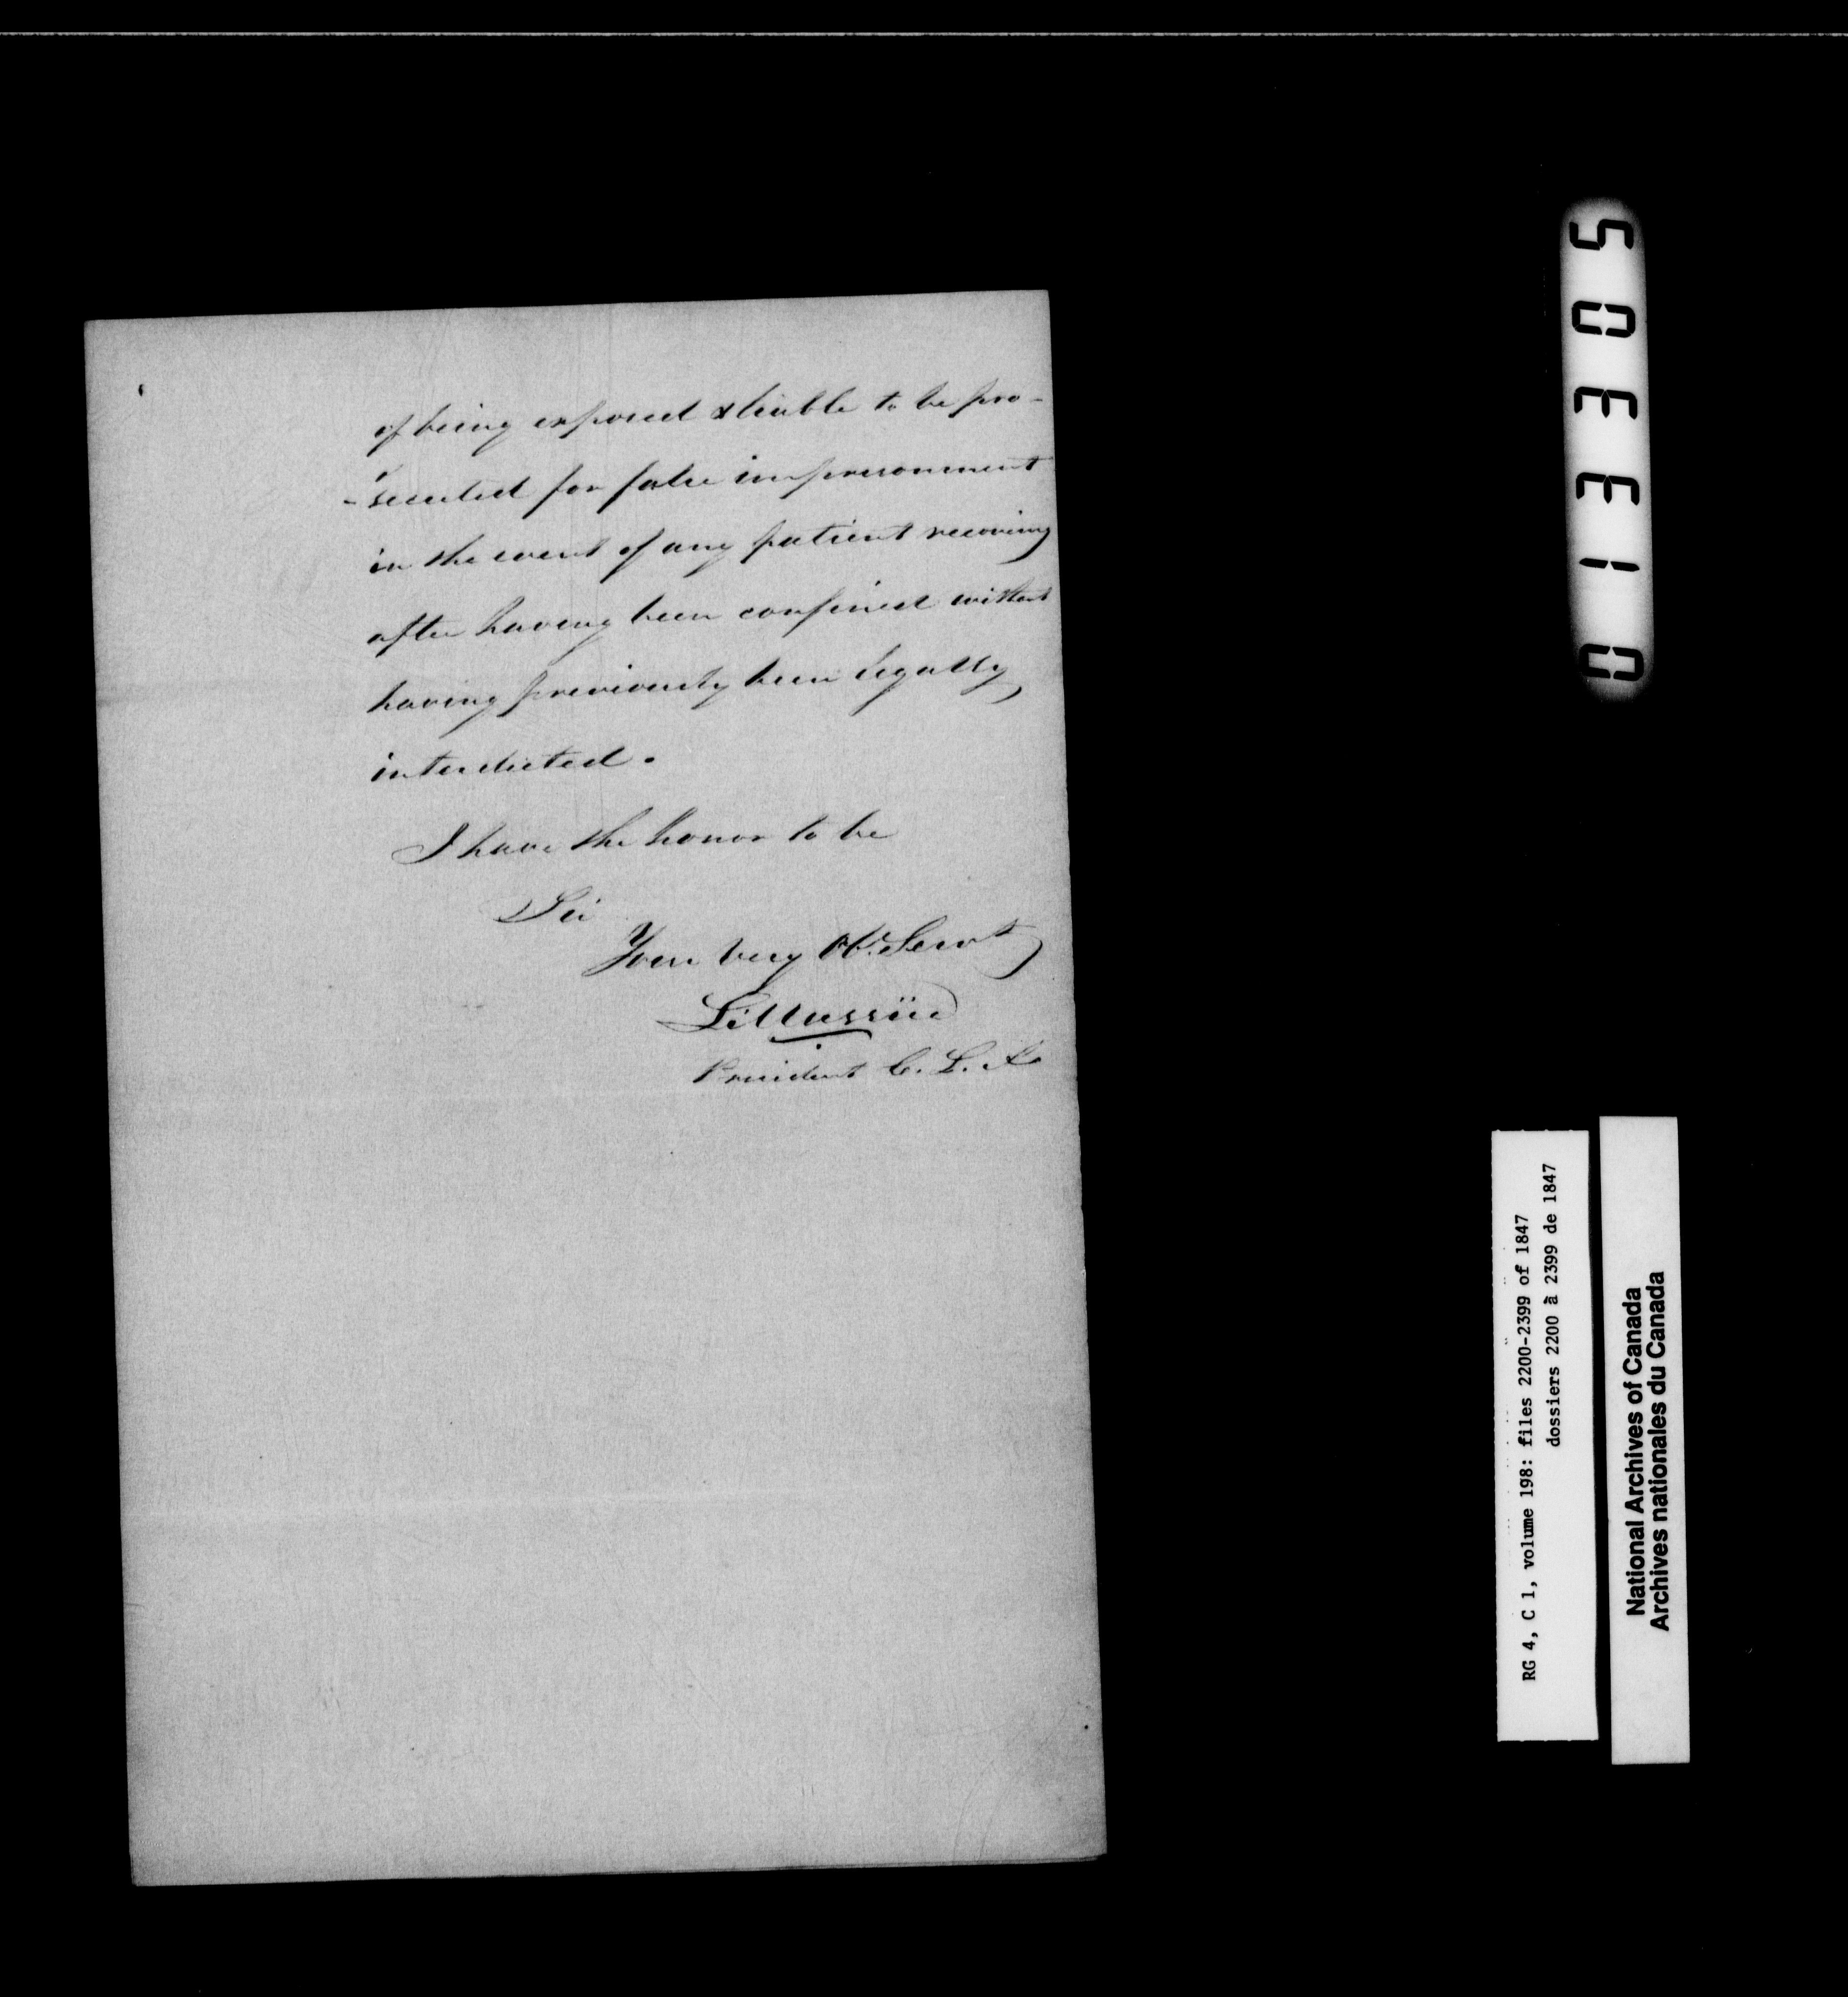 of being exposed & liable to be pro-
-secuted for false imprisonment
in the event of any patient recovering
after having been confined without
having previously been legally
interdicted.
I have the honor to be
Sir
Your very Ob. Servt
President C. L. A
013305
RG 4, C 1, volume 198: files 2200-2399 of 1847
dossiers 2200 à 2399 de 1847
National Archives of Canada
Archives nationales du Canada